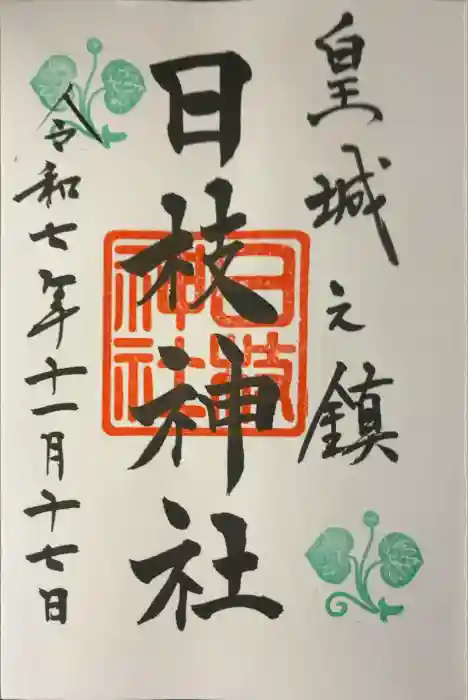 皇城之鎮
日枝神社
日枝神社
令和七年十一月十七日